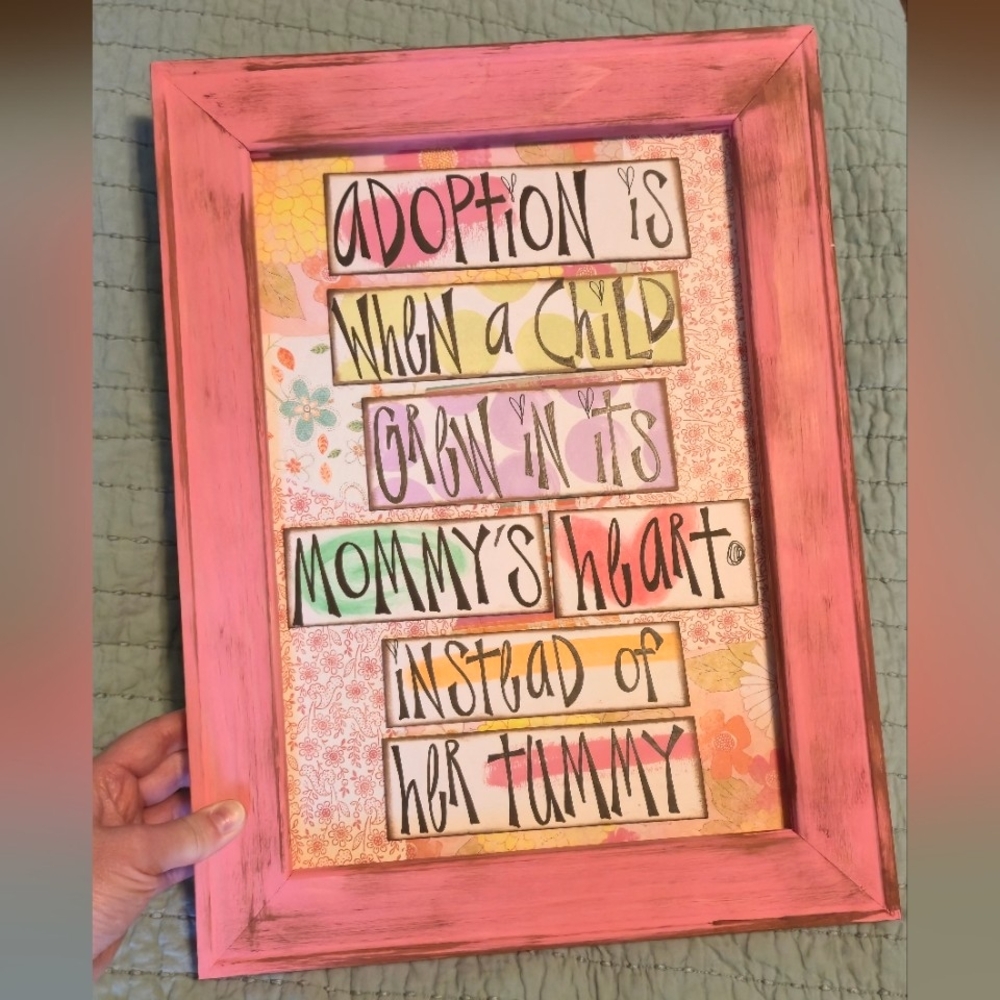 aDOPtiON iS
WheN a ChiLD
GReW iN itS
MOMMY'S heaRt
iNSteaD of
heR tUMMY